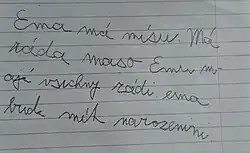 Ema má mísu. Má
ráda maso Emu m
ají vsichny rádi ema
bude mít narozeniny